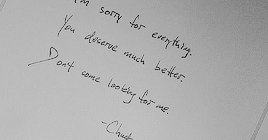 I'm sorry for everything.
You deserve much better.
Don't come looking for me.